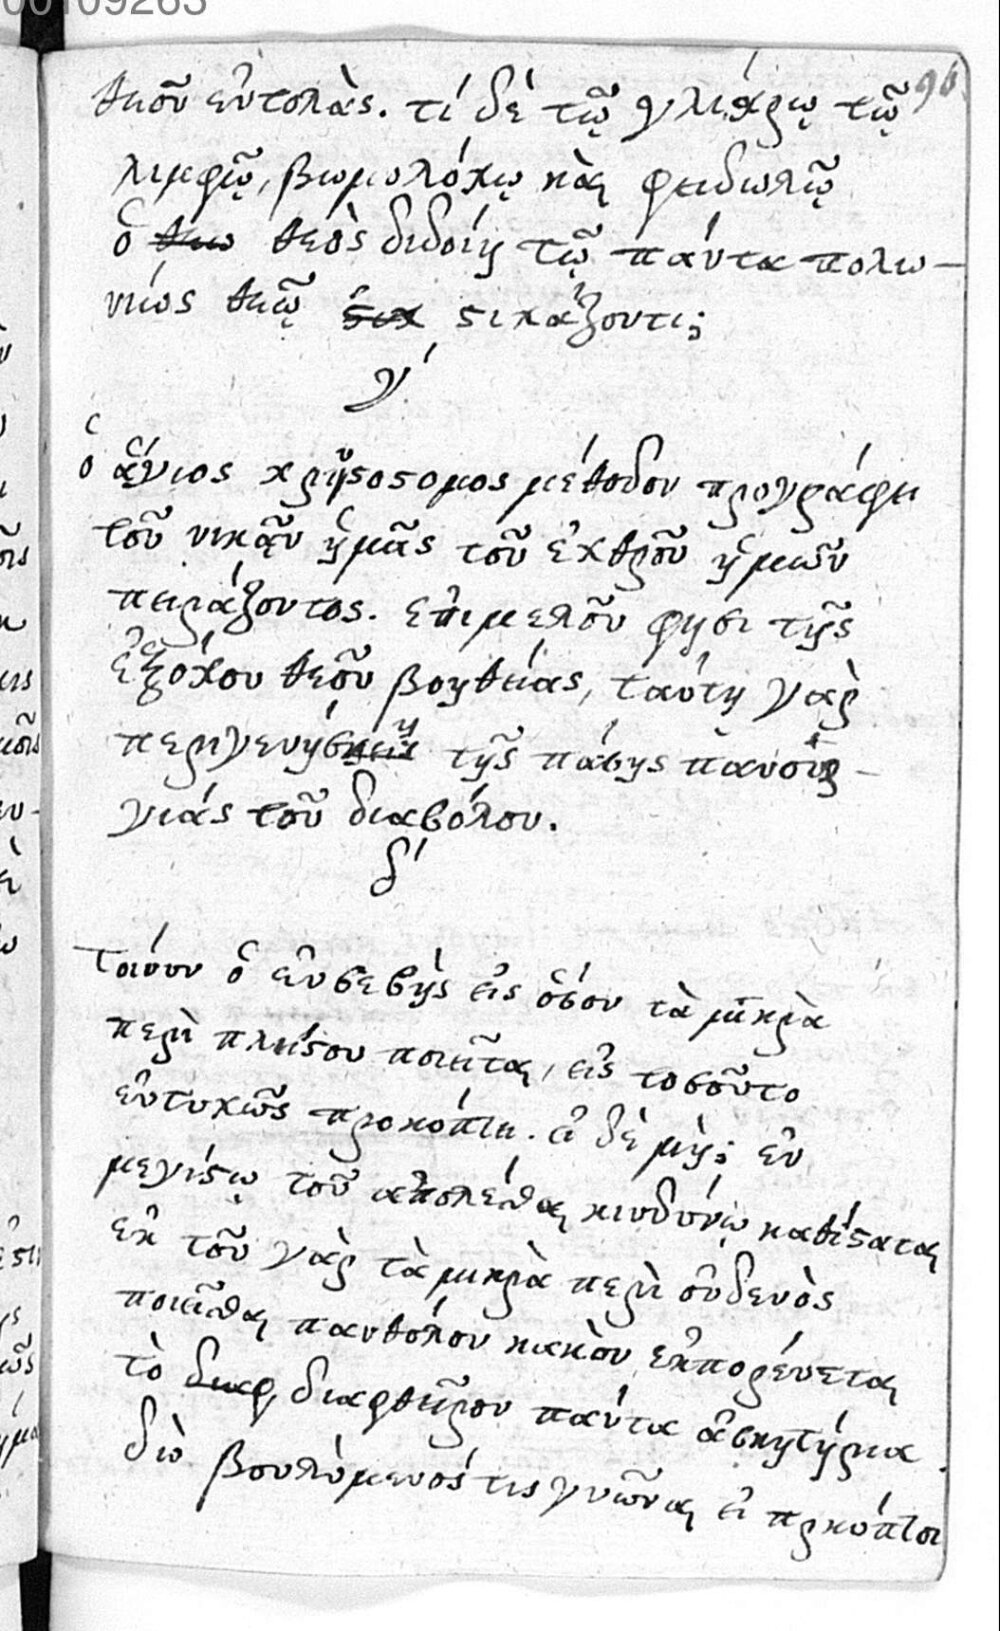 00109263
96
θεοῦ ἐντολὰς. τί δὲ τῷ γλίσχρῳ τῷ
λιμφῷ, βωμολόχῳ καὶ φειδωλῷ
ὁ θεω θεὸς διδοίη τῷ πάντα πολω-
νίως θεῷ στιχάζοντι;
γ´
ὁ ἅγιος χρυσόστομος μέθοδον προγράφει
τοῦ νικᾷν ἡμᾶς τοῦ ἐχθροῦ ἡμῶν
πειράζοντος. ἐπιμελοῦ φησι τῆς
ἐξόχου θεοῦ βοηθείας, ταύτῃ γὰρ
περιγενήσῃ τῆς πάσης πανουρ-
γιάς τοῦ διαβόλου.
δ´
Τοίνυν ὁ εὐσεβὴς εἰς ὅσον τὰ μικρὰ
περὶ πλείστου ποιεῖται, εἰς τοσοῦτο
εὐτυχῶς προκόπτει. εἰ δὲ μὴ; ἐν
μεγίστῳ τοῦ ἀπολέσθαι κινδύνῳ καθίσταται
ἐκ τοῦ γὰρ τὰ μικρὰ περὶ οὐδενὸς
ποιεῖσθαι πανθόλου κακὸν ἐκπορεύεται
τὸ διαφ διαφθεῖρον πάντα ἀσκητήρια.
διὸ βουλόμενός τις γνῶναι εἰ προκόπτοι